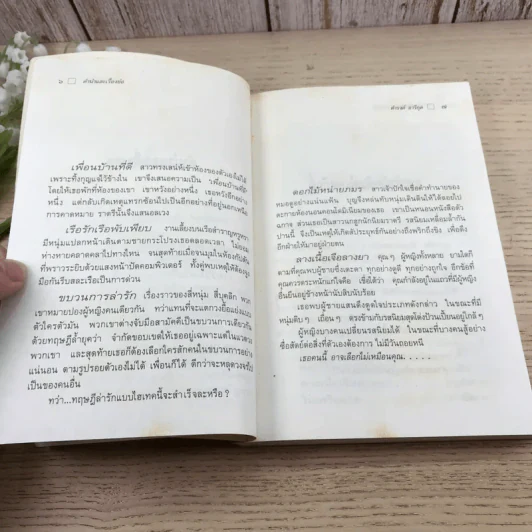 ๖
เพื่อนบ้านที่ดี สาวทรงเสน่ห์เข้าห้องของตัวเองไม่ได้
เพราะทั้งกุญแจไว้ข้างใน เขาจึงเสนอความเป็น เพื่อนบ้านที่ดี
โดยให้เธอพักที่ห้องของเขา เขาหวังอย่างหนึ่ง เธอหวังอีกอย่าง
หนึ่ง แต่กลับเกิดเหตุแทรกซ้อนไปเป็นอีกอย่างที่อยู่นอกเหนือ
การคาดหมาย ราตรีนั้นจึงแสนอลวง
เรือรักเรือพับเพียบ งานเลี้ยงบนเรือสำราญหรูหรา
มีหนุ่มแปลกหน้าเดินตามชายกระโปรงเธอตลอดเวลา ไม่ยอม
ห่างหายคลาดคลาไปทางไหน จนสุดท้ายเมื่อจนมุมในห้องกัปตัน
ที่พราวระยับด้วยแสงหน้าปัดคอมพิวเตอร์ ทั้งคู่พบเหตุให้ต้องจูง
มือกันรีบสละเรือเป็นการด่วน
ขบวนการล่ารัก เรื่องราวของสี่หนุ่ม สี่บุคลิก พวก
เขาหมายปองผู้หญิงคนเดียวกัน ทว่าแทนที่จะแก่งแย่งแข่งขัน
ตัวใครตัวมัน พวกเขาต่างจับมือสามัคคีเป็นขบวนการเดียวกัน
ด้วยทฤษฎีล้ำยุคว่า จงกำจัดขอบเขตให้เธออยู่เฉพาะแต่ในแวดวง
พวกเขา และสุดท้ายเธอก็ต้องเลือกใครสักคนในขบวนการอย่าง
แน่นอน ตามรูปรอยตัวเองไม่ได้ เพื่อนก็ได้ ดีกว่าจะหลุดวงจรไป
เป็นของคนอื่น
ทว่า...ทฤษฎีล่ารักแบบไฮเทคนี้จะสำเร็จละหรือ ?
๗
ดอกไม้หน่ายภมร สาวเจ้าปักใจเชื่อคำทำนายของ
หมอดูอย่างแน่นแฟ้น บุญจึงหล่นทับหนุ่มเดินดินให้ได้ลอยไป
ตะกายห้องนอนคอนโดมิเนียมของเธอ เขาเป็นหนอนหนังสือตัว
ฉกาจ ส่วนเธอเป็นวนกสูกนักนิยมราตรี รสนิยมเหลื่อมล้ำกัน
ปานนี้ จึงเป็นเหตุให้เกิดสัประยุทธ์กันอย่างถึงพริกถึงขิง เพื่อดึง
อีกฝ่ายให้มาอยู่ฝ่ายตน
ลางเนื้อเจือลางยา คุณ ๆ ผู้หญิงทั้งหลาย ยามใดที่
ถามที่คุณพบผู้ชายซึ่งเตะตา ทุกอย่างดูดี ทุกอย่างถูกใจ อีกข้อที่
คุณควรตระหนักแก่ใจคือ เชื่อได้ว่า คุณกำลังอยู่ในแถวที่มีผู้หญิง
อื่นยืนอยู่ข้างหน้านับสิบนับร้อย
เธอพบผู้ชายแสนดีงดูดใจประเภทดังกล่าว ในขณะที่มี
หนุ่มดิบ ๆ เถื่อน ๆ ตรงข้ามกับรสนิยมสุดโต่งป้วนเปี้ยนอยู่ใกล้ ๆ
ผู้หญิงบางคนเปลี่ยนรสนิยมได้ ในขณะที่บางคนสู้อย่าง
ซื่อสัตย์ต่อสิ่งที่ตัวต้องการ ไม่มีวันถอยหนี
เธอคนนี้ อาจเลือกไม่เหมือนคุณ. . . . .